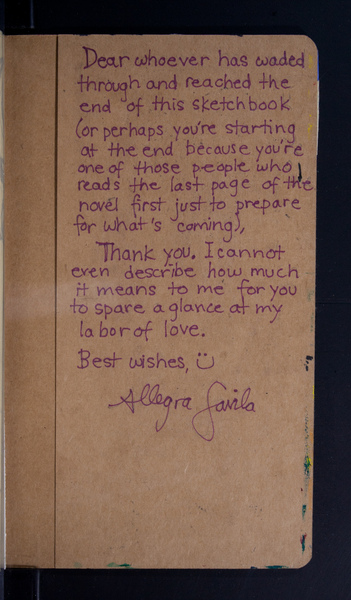 Dear whoever has waded
through and reached the
end of this sketchbook
(or perhaps you're starting
at the end because you're
one of those people who
reads the last page of the
novel first just to prepare
for what's coming),
Thank you. I cannot
even describe how much
it means to me for you
to spare a glance at my
labor of love.
Best wishes,
Allegra